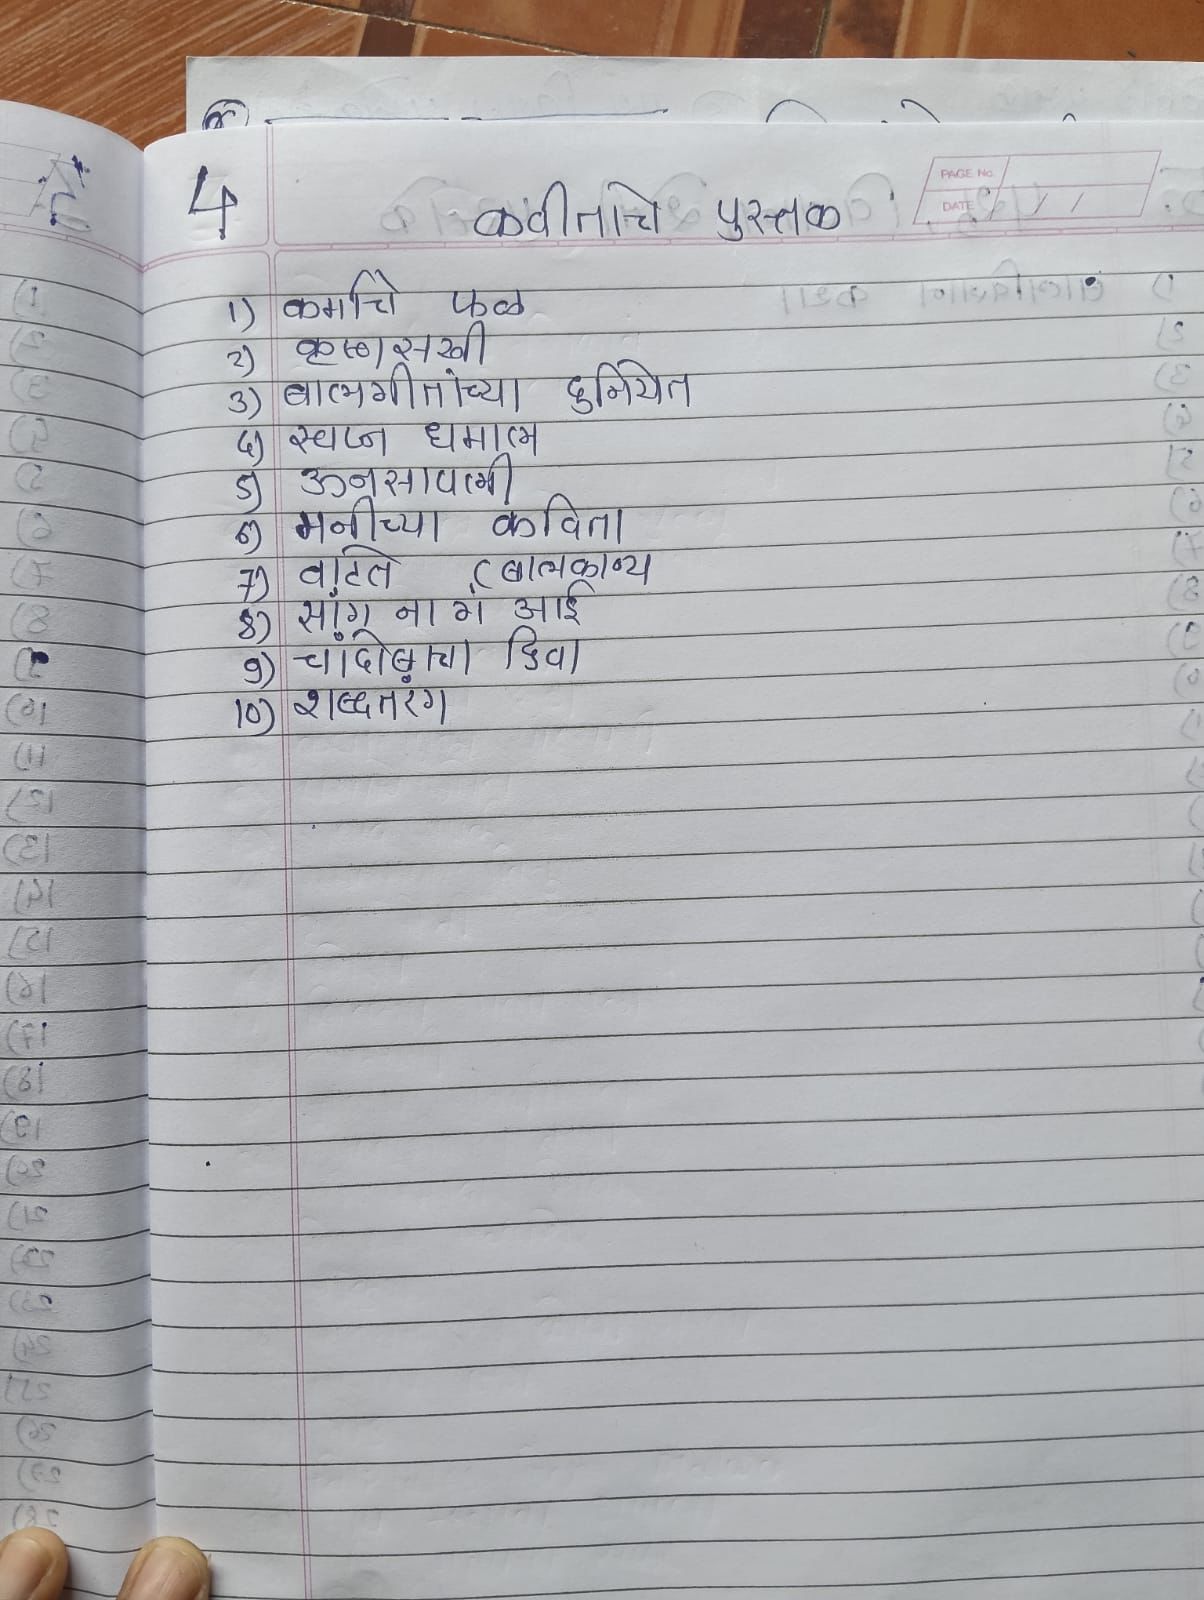 4
कवीतांचे पुस्तक
PAGE No.
DATE / /
1) कर्माचे फळ
2) कृष्णसखी
3) बालगीतांच्या दुनियेत
4) स्वप्न धमाल
5) ऊनसावली
6) मनीच्या कविता
7) वाटते (बालकाव्य
8) सांग ना गं आई
9) चांदोबाचा दिवा
10) शब्दतरंग